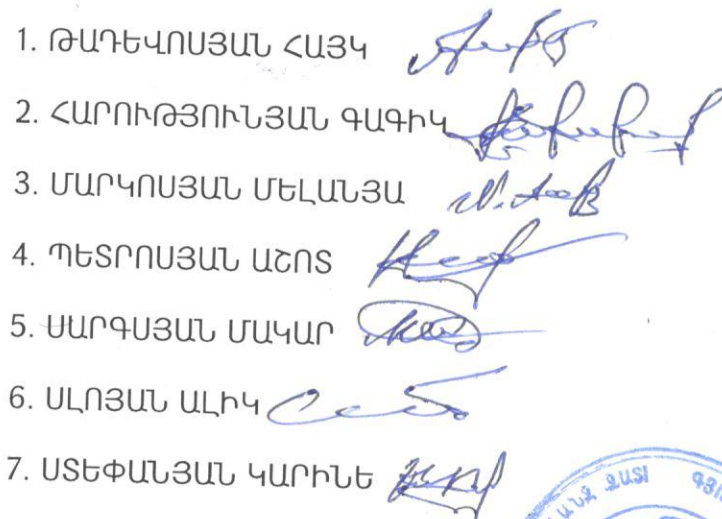 1. ԹԱԴԵՎՈՍՅԱՆ ՀԱՅԿ
2. ՀԱՐՈՒԹՅՈՒՆՅԱՆ ԳԱԳԻԿ
3. ՄԱՐԿՈՍՅԱՆ ՄԵԼԱՆՅԱ
4. ՊԵՏՐՈՍՅԱՆ ԱՇՈՏ
5. ՍԱՐԳՍՅԱՆ ՄԱԿԱՐ
6. ՍԼՈՅԱՆ ԱԼԻԿ
7. ՍՏԵՓԱՆՅԱՆ ԿԱՐԻՆԵ